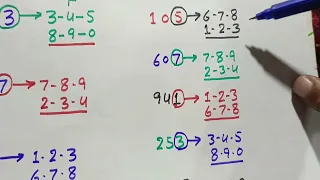 3 → 3-4-5
8-9-0
→ 7-8-9
2-3-4
→ 1-2-3
6-7-8
105 → 6-7-8
1-2-3
607 → 7-8-9
2-3-4
941 → 1-2-3
6-7-8
253 → 3-4-5
8-9-0